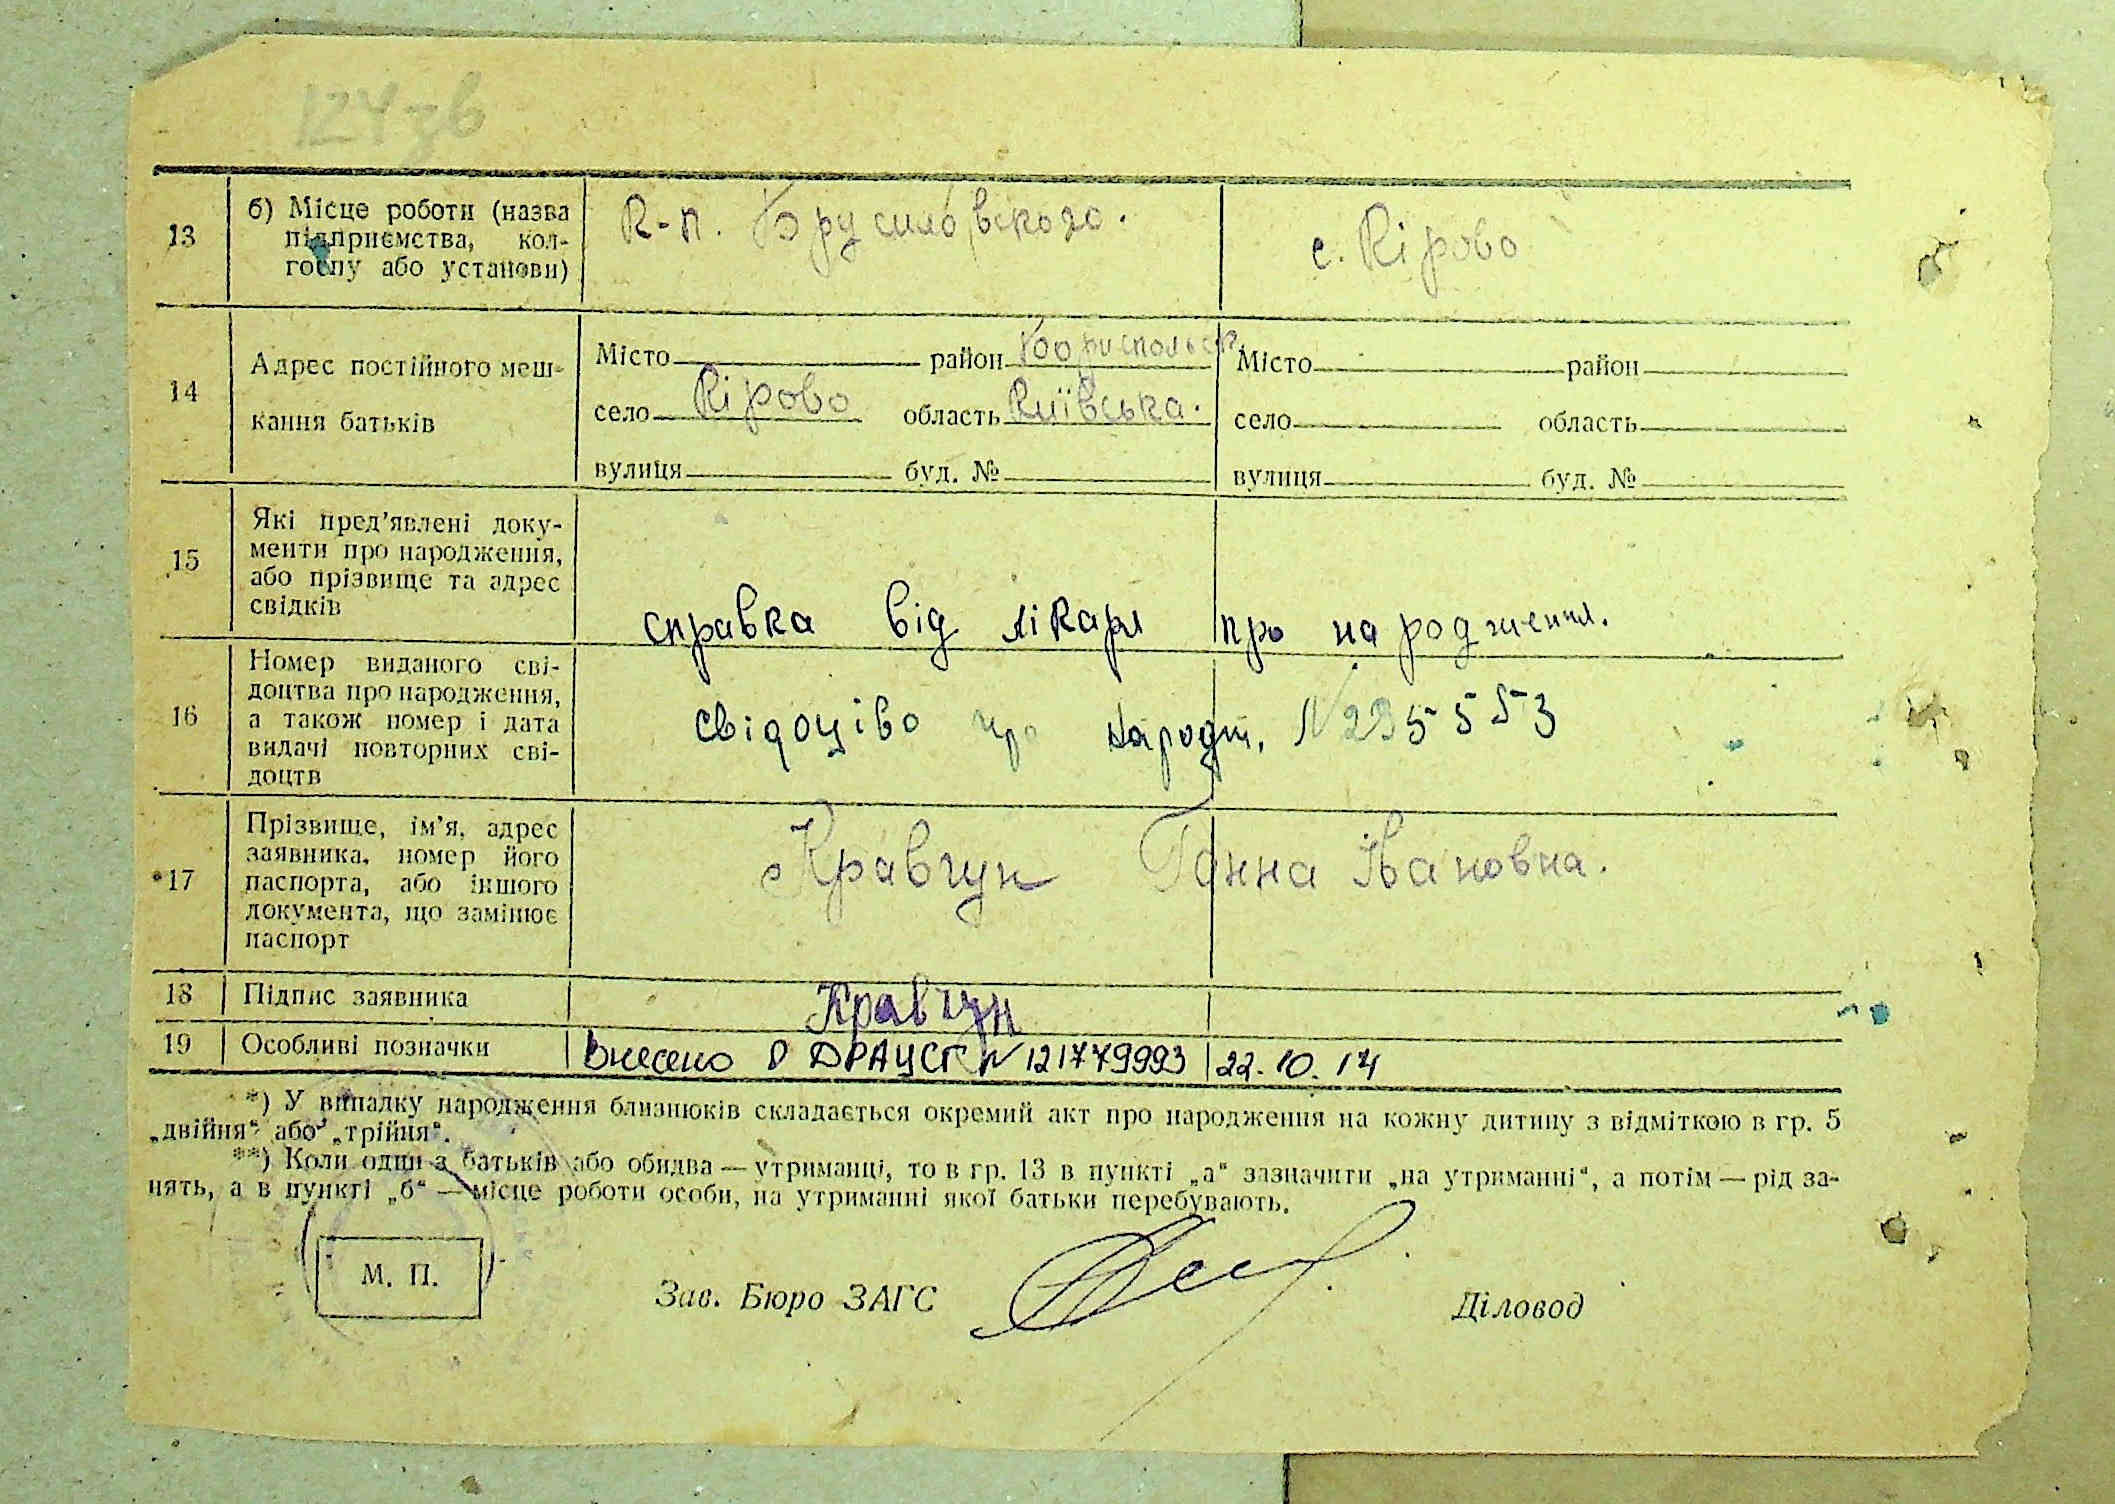 124 зв
13
б) Місце роботи (назва
підприємства, кол-
госпу або установи)
к-п. Брусиловського.
с. Кірово
14
Адрес постійного меш-
кання батьків
Місто район Бориспольськ.
село Кірово область Київська.
вулиця буд. №
Місто район
село область
вулиця буд. №
15
Які пред’явлені доку-
менти про народження,
або прізвище та адрес
свідків
справка від лікаря про народження.
16
Номер виданого сві-
доцтва про народження,
а також номер і дата
видачі повторних сві-
доцтв
свідоцтво про народж. № 235553
17
Прізвище, ім’я, адрес
заявника, номер його
паспорта, або іншого
документа, що замінює
паспорт
Кравчун Ганна Івановна.
18
Підпис заявника
Кравчун
19
Особливі позначки
Внесено в ДРАЦСГ № 121779993 22.10.14
*) У випадку народження близнюків складається окремий акт про народження на кожну дитину з відміткою в гр. 5
„двійня“ або „трійня“.
**) Коли один з батьків або обидва — утриманці, то в гр. 13 в пункті „а“ зазначити „на утриманні“, а потім — рід за-
нять, а в пункті „б“ — місце роботи особи, на утриманні якої батьки перебувають.
М. П.
Зав. Бюро ЗАГС
Діловод